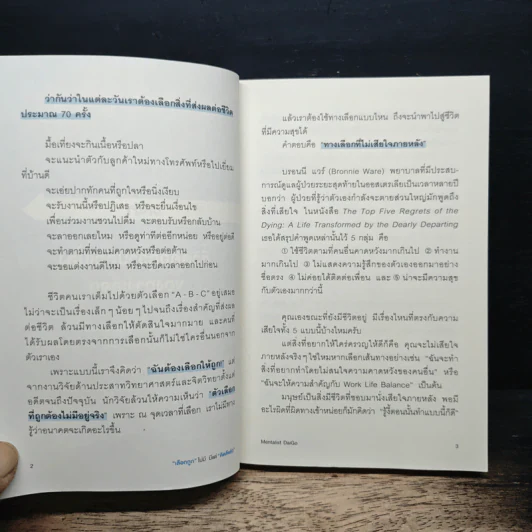 ว่ากันว่าในแต่ละวันเราต้องเลือกสิ่งที่ส่งผลต่อชีวิต
ประมาณ 70 ครั้ง
มื้อเที่ยงจะกินเนื้อหรือปลา
จะแนะนำตัวกับลูกค้าใหม่ทางโทรศัพท์หรือไปเยี่ยม
ที่บ้านดี
จะเอ่ยปากทักคนที่ถูกใจหรือนิ่งเงียบ
จะรับงานนี้หรือปฏิเสธ หรือจะยื่นเงื่อนไข
เพื่อนร่วมงานชวนไปดื่ม จะตอบรับหรือกลับบ้าน
จะลาออกเลยไหม หรือดูท่าทีต่ออีกหน่อย หรืออยู่ต่อดี
จะทำตามที่พ่อแม่คาดหวังหรือต่อต้าน
จะขอแต่งงานดีไหม หรือจะยืดเวลาออกไปก่อน
ชีวิตคนเราเต็มไปด้วยตัวเลือก "A - B - C" อยู่เสมอ
ไม่ว่าจะเป็นเรื่องเล็ก ๆ น้อย ๆ ไปจนถึงเรื่องสำคัญที่ส่งผล
ต่อชีวิต ล้วนมีทางเลือกให้ตัดสินใจมากมาย และคนที่
ได้รับผลโดยตรงจากการเลือกนั้นก็ไม่ใช่ใครอื่นนอกจาก
ตัวเราเอง
เพราะแบบนี้เราจึงคิดว่า "ฉันต้องเลือกให้ถูก" แต่
จากงานวิจัยด้านประสาทวิทยาศาสตร์และจิตวิทยาตั้งแต่
อดีตจนถึงปัจจุบัน นักวิจัยล้วนให้ความเห็นว่า "ตัวเลือก
ที่ถูกต้องไม่มีอยู่จริง" เพราะ ณ จุดเวลาที่เลือก เราไม่มีทาง
รู้ว่าอนาคตจะเกิดอะไรขึ้น
2
"เลือกถูก" ไม่มี มีแค่
แล้วเราต้องใช้ทางเลือกแบบไหน ถึงจะนำพาไปสู่ชีวิต
ที่มีความสุขได้
คำตอบคือ "ทางเลือกที่ไม่เสียใจภายหลัง"
บรอนนี แวร์ (Bronnie Ware) พยาบาลที่มีประสบ-
การณ์ดูแลผู้ป่วยระยะสุดท้ายในออสเตรเลียเป็นเวลาหลายปี
บอกว่า ผู้ป่วยที่รู้ว่าตัวเองกำลังจะตายส่วนใหญ่มักพูดถึง
สิ่งที่เสียใจ ในหนังสือ The Top Five Regrets of the
Dying: A Life Transformed by the Dearly Departing
เธอได้สรุปคำพูดเหล่านั้นไว้ 5 กลุ่ม คือ
① ใช้ชีวิตตามที่คนอื่นคาดหวังมากเกินไป ② ทำงาน
มากเกินไป ③ ไม่แสดงความรู้สึกของตัวเองออกมาอย่าง
ซื่อตรง ④ ไม่ค่อยได้ติดต่อเพื่อน และ ⑤ น่าจะมีความสุข
กับตัวเองมากกว่านี้
คุณเองขณะที่ยังมีชีวิตอยู่ มีเรื่องไหนที่ตรงกับความ
เสียใจทั้ง 5 แบบนี้บ้างไหมครับ
แต่สิ่งที่อยากให้ใคร่ครวญให้ดีก็คือ คุณจะไม่เสียใจ
ภายหลังจริงๆ ใช่ไหมหากเลือกเส้นทางอย่างเช่น "ฉันจะทำ
สิ่งที่อยากทำโดยไม่สนใจความคาดหวังของคนอื่น" หรือ
"ฉันจะให้ความสำคัญกับ Work Life Balance" เป็นต้น
มนุษย์เป็นสิ่งมีชีวิตที่ชอบมานั่งเสียใจภายหลัง พอมี
อะไรผิดที่ผิดทางเข้าหน่อยก็มักคิดว่า "รู้งี้ตอนนั้นทำแบบนี้ก็ดี"
Mentalist DaiGo
3